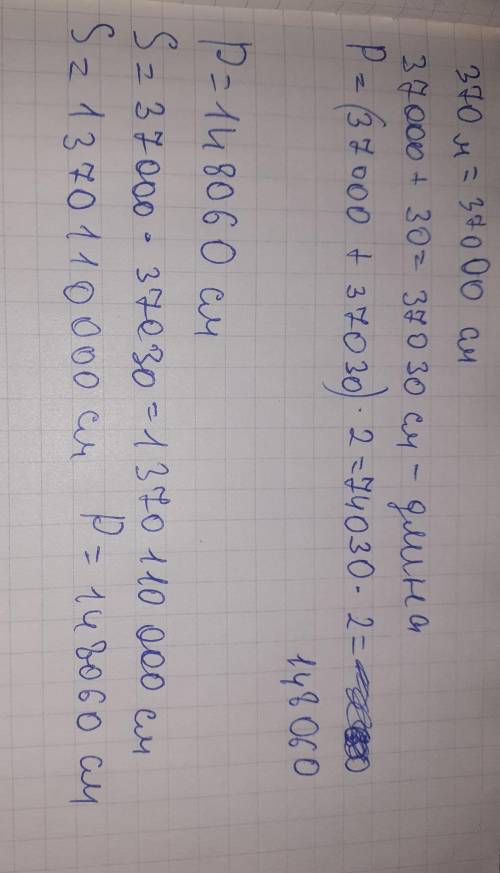 370 м = 37000 см
37000 + 30 = 37030 см - длина
P = (37000 + 37030) · 2 = 74030 · 2 =
148060
P = 148060 см
S = 37000 · 37030 = 1370 110 000 см
S = 1370110000 см P = 148060 см